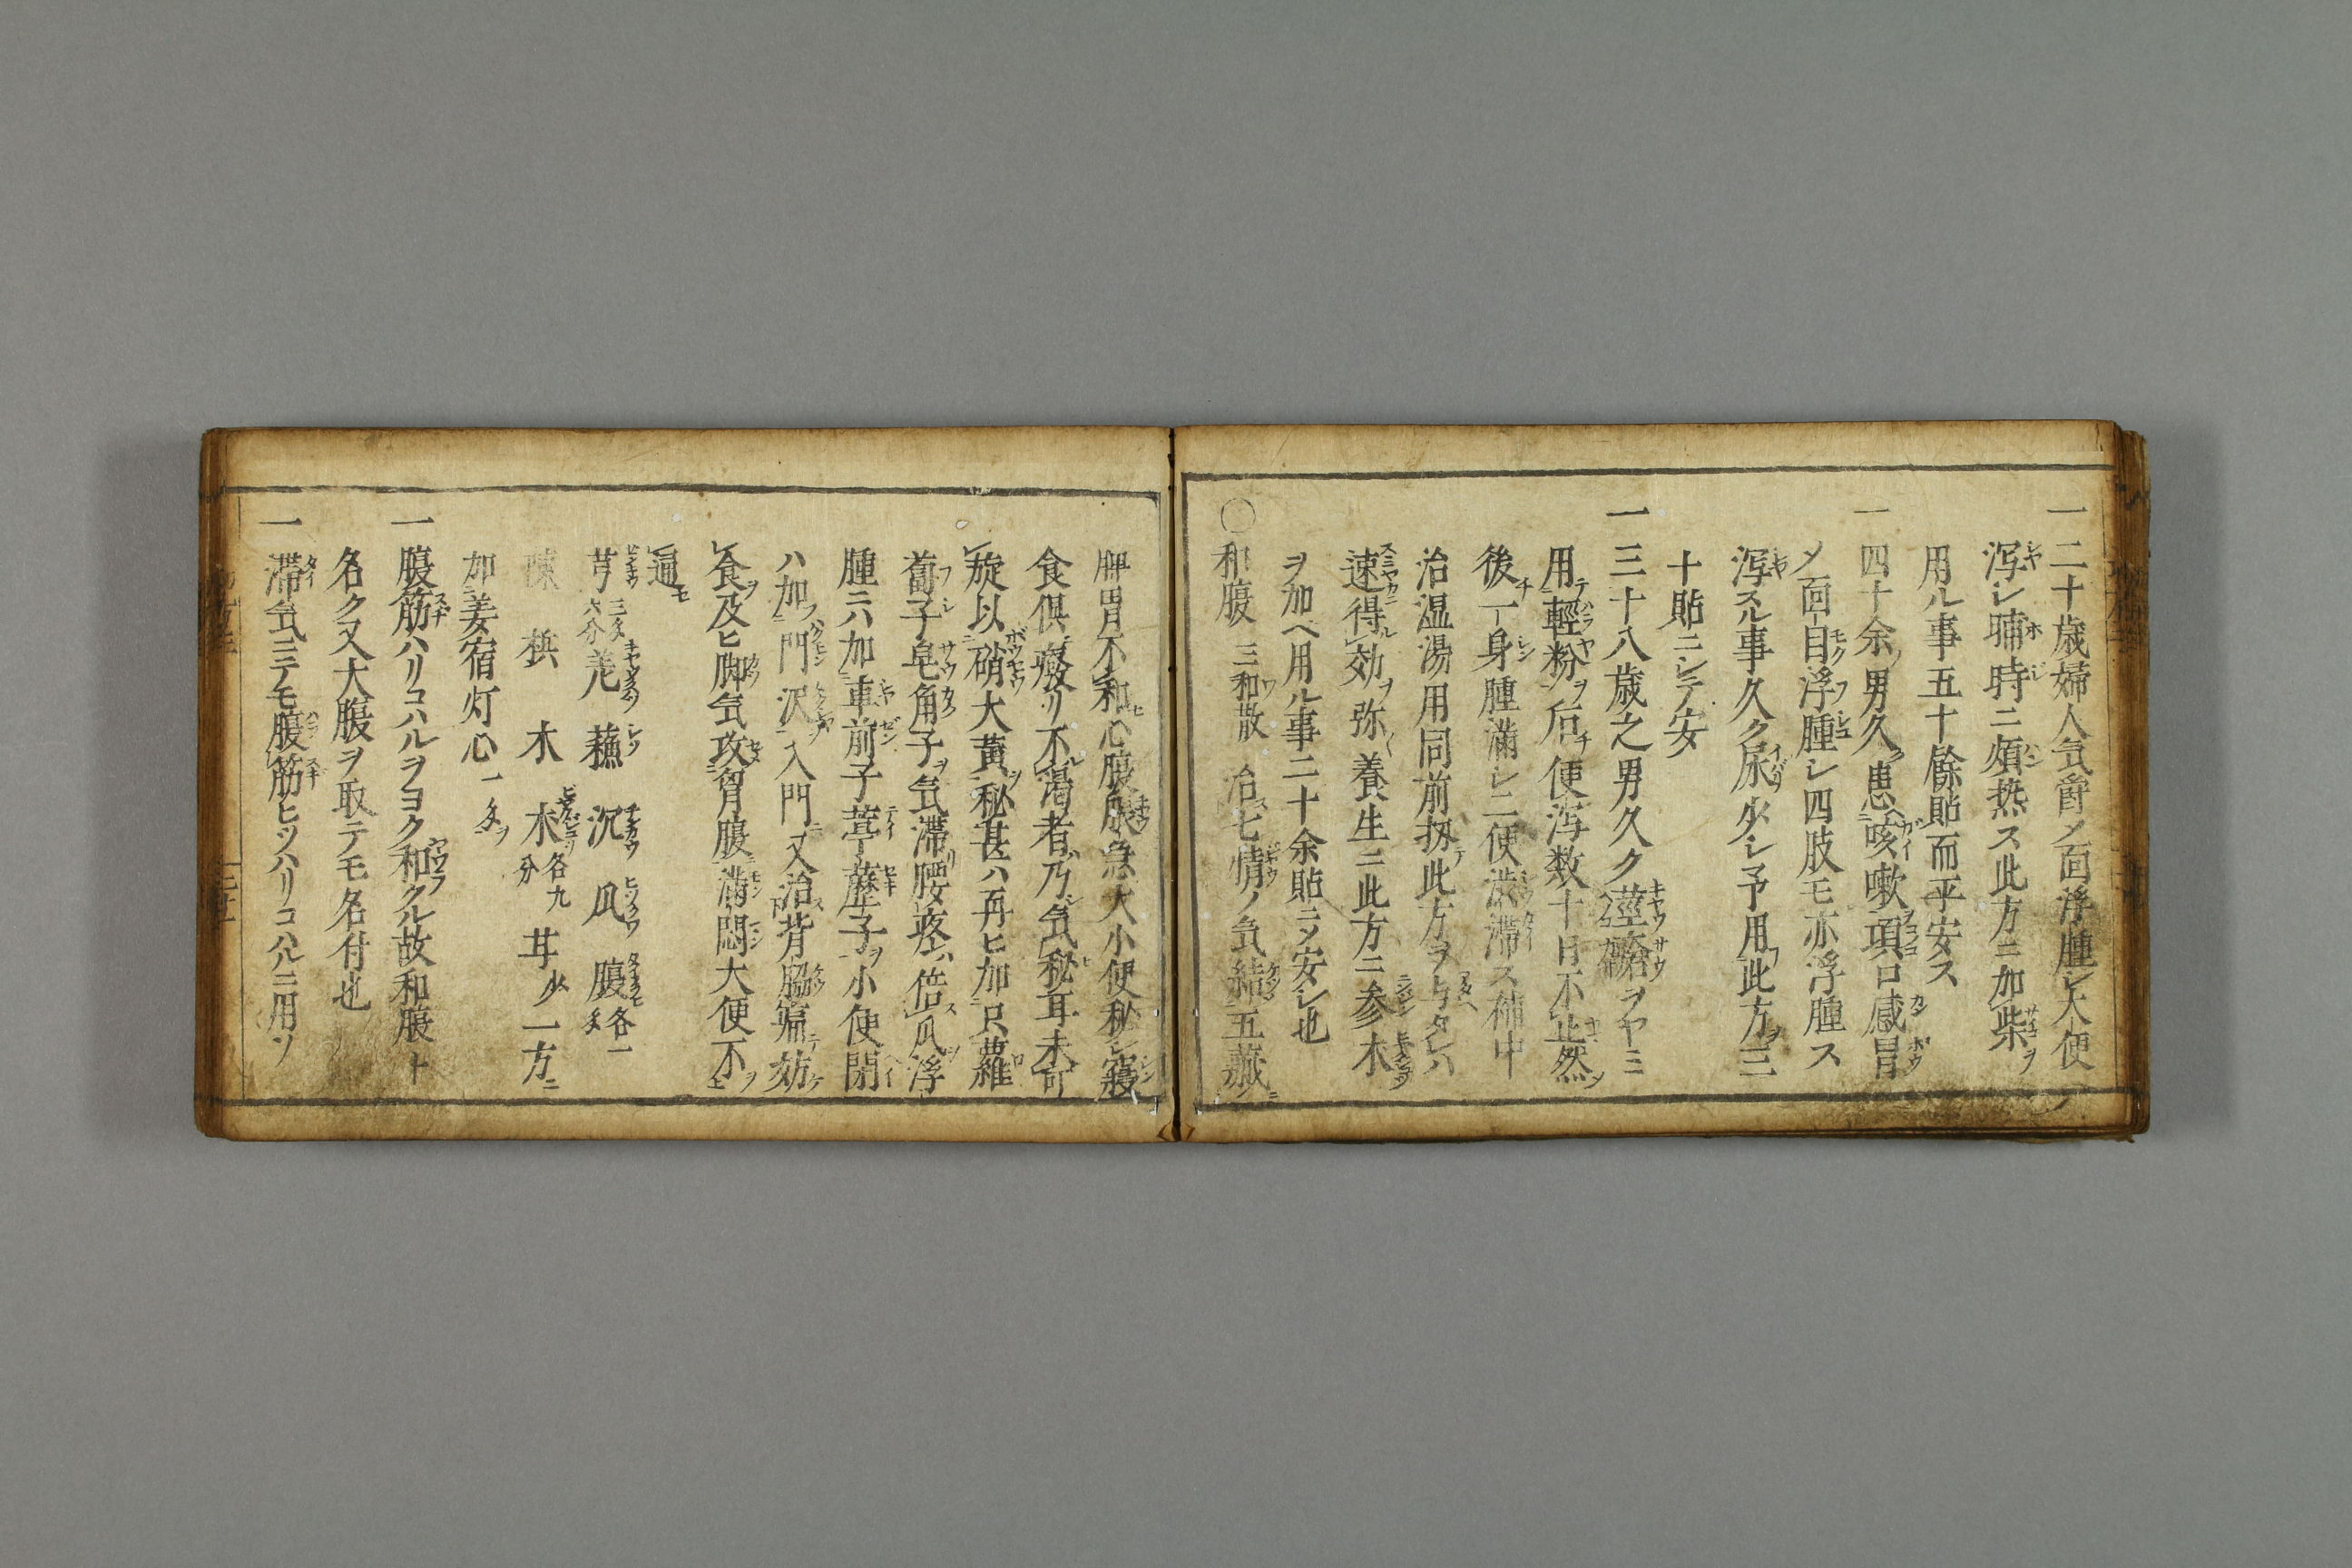 一二十歳婦人気欝ノ面浮腫シ大便
泻シ晡時ニ煩热ス此方ニ加柴ヲ
用ル事五十餘貼而平安ス
一四十余ノ男久ク患咳嗽項口感冒
ノ面目浮腫シ四肢モ亦浮腫ス
泻スル事久ク尿少シ予用此方ヲ三
十貼ニシテ安
一三十八歳之男久クヲヤミ
用輕粉ヲ后チ便泻数十日不止然ヲ
後一身腫滿シ二便渋滯ス
治温湯用同前扨此方ヲ与タレハ
速得効ヲ弥養生ニ此方ニ参木
ヲ加ヘ用ル事二十余貼ニメ安シ也
〇和腹 三和散 治七情ノ気結五藏ノ
脾胃不和心腹急大小便秘シ寢
食倶癈リ不渇者乃気秘耳未可
旋以硝大黄ヲ秘甚ハ再ヒ加只蘿
蔔子皂角子ヲ気滯腰疼ハ倍瓜ヲ浮
腫ニハ加車前子葶藶子ヲ小便閉
ハ加門沢入門又治背脇痛効
食及ヒ脚気攻胷腹滿悶大便不
通
芎三匁六分 羌 蘓 沉 瓜 腹各一匁
陳 梹 木 朮各九分 甘少 一方ニ
加姜宿灯心一匁ヲ
一腹筋ハリコハルヲヨク和クル故和腹ト
名ク又大腹ヲ取テモ名付也
一滯気ニテモ腹筋ヒツハリコハルニ用ソ